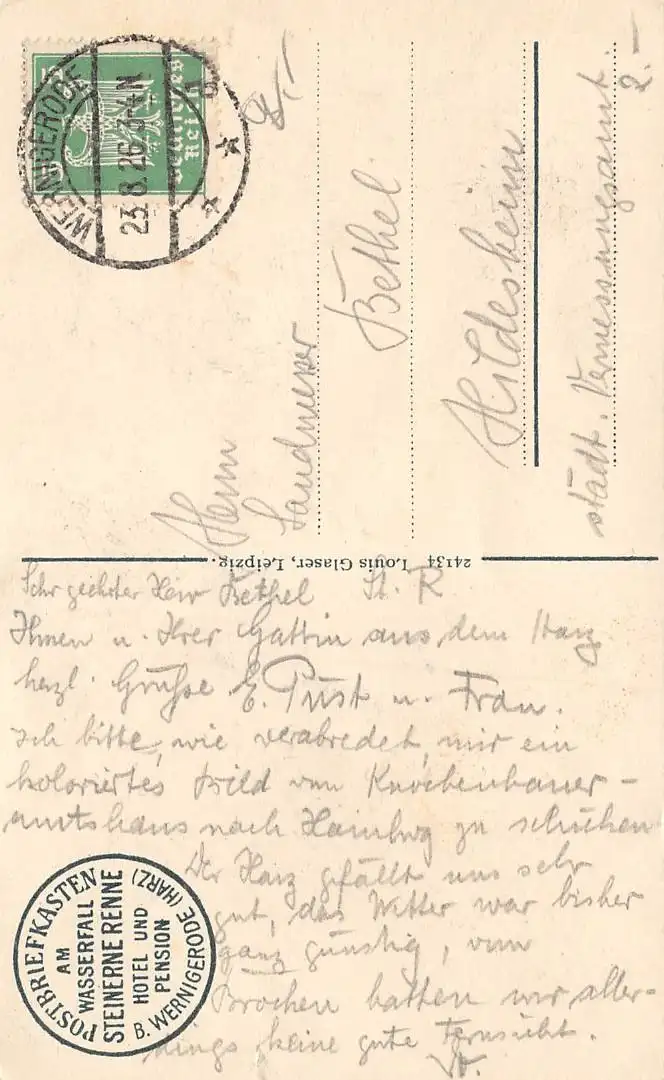 5
Deutsches
Reich
WERNIGERODE
23.8.26.3-4N
Herrn
Landmesser
Bethel
Hildesheim
städt. Vermessungsamt
2.-
24134 Louis Glaser, Leipzig.
Sehr geehrter Herr Bethel St. R
Ihnen u. Ihrer Gattin aus dem Harz
herzl. Grüße E. Pust u. Frau.
Ich bitte, wie verabredet, mir ein
koloriertes Bild vom Knochenhauer-
amtshaus nach Hamburg zu schicken
Der Harz gefällt uns sehr
gut, das Wetter war bisher
ganz günstig, vom
Brocken hatten wir aller-
dings keine gute Fernsicht.
POSTBRIEFKASTEN
AM
WASSERFALL
STEINERNE RENNE
HOTEL UND
PENSION
B. WERNIGERODE (HARZ)